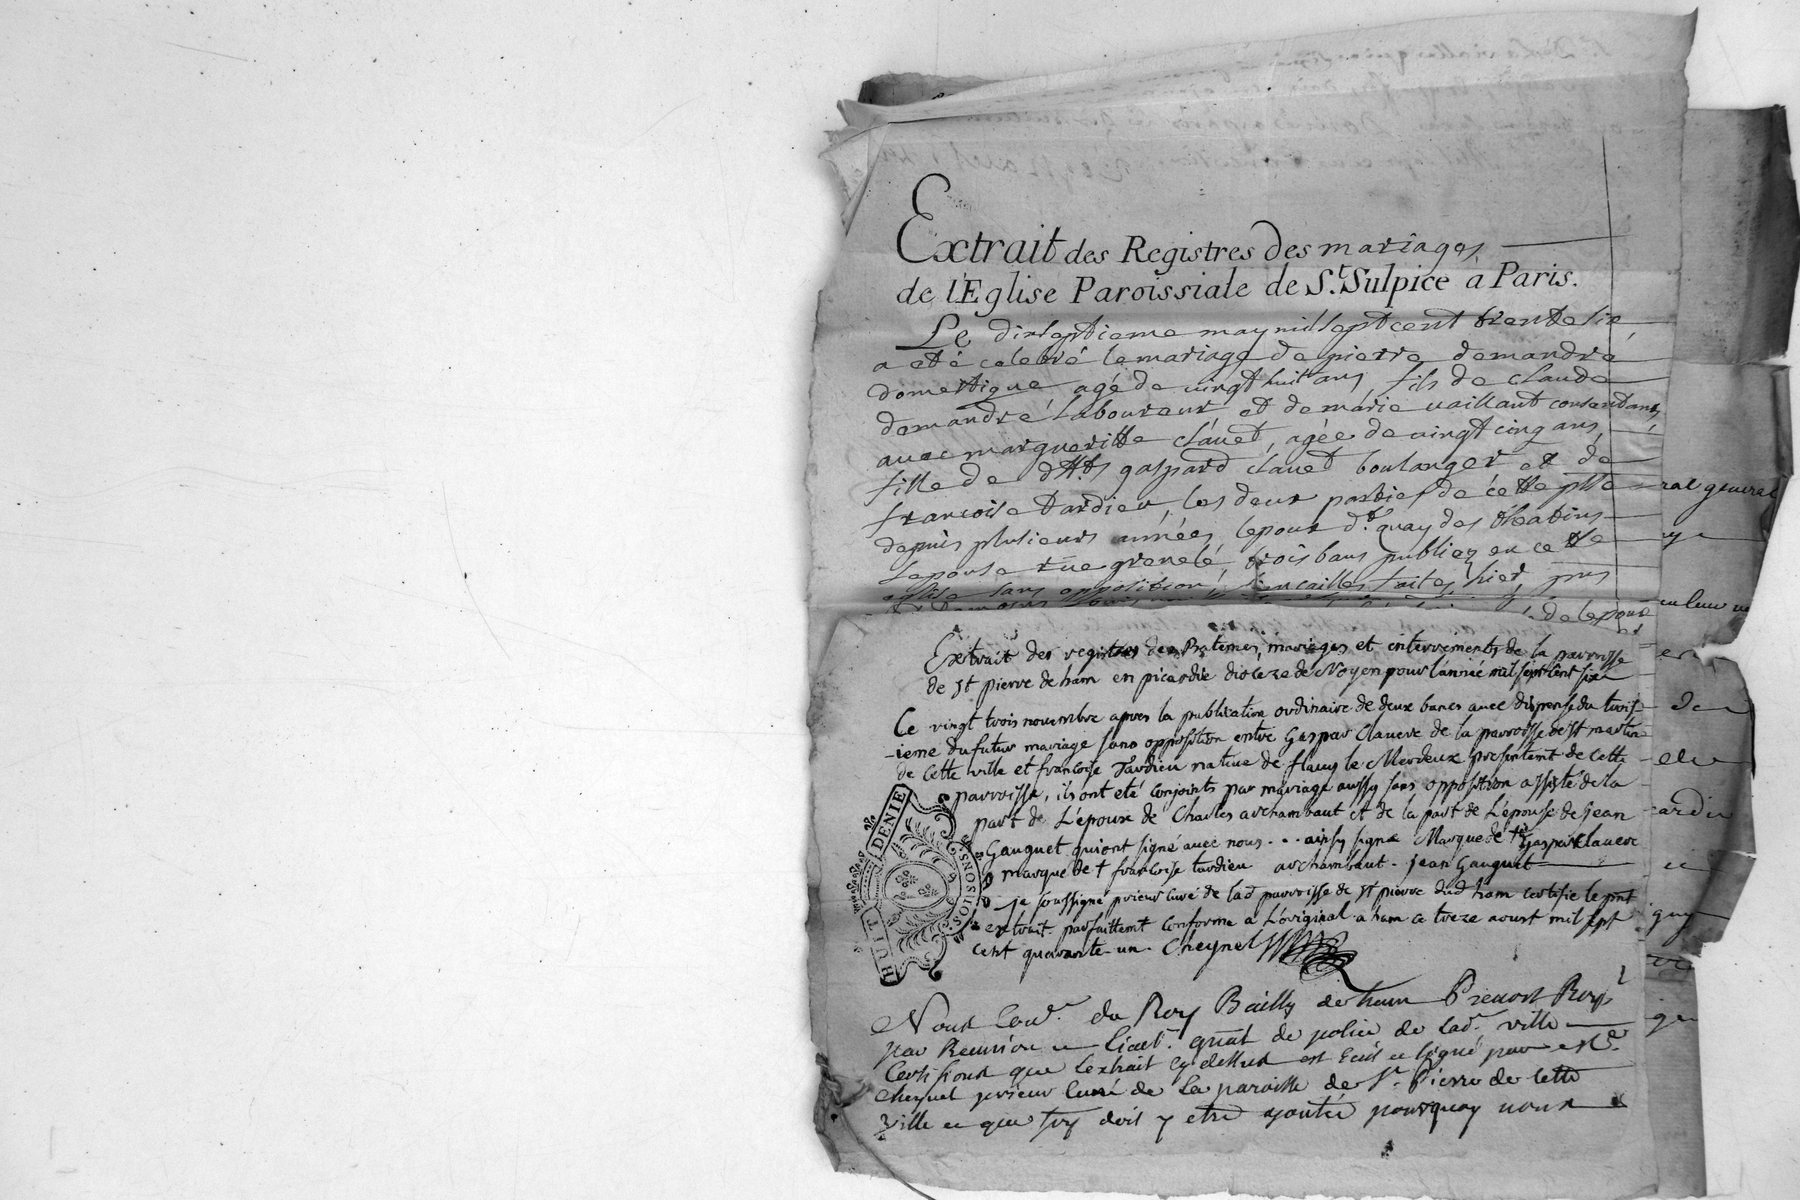 Extrait des Registres des mariages
de l'Eglise Paroissiale de St. Sulpice à Paris.
Le dixseptieme may mil sept cent trente six
a eté celebré le mariage de pierre demandré
domestique agé de vingt huit ans, fils de claude
demandré laboureur et de marie vaillant consentans,
avec margueritte clauet, agée de vingt cinq ans,
fille de dfts gaspard clauet boulanger et de
francoise tardieu, les deux parties de cette psse
depuis plusieurs années, lepoux dt. quay des theatins
lepouse rue grenelé, trois bans publiez en cette
eglise sans opposition, fiencailles faites hier, pns
de lepoux
Extrait des registres des Batemes, mariages et enterrements de la parroisse
de st pierre de ham en picardie dioceze de Noyon pour l'année mil sept cent six
Ce vingt trois novembre apres la publication ordinaire de deux bancs avec dispense du trois
-ieme du futur mariage sans opposition entre Gaspar Clauere de la parroisse de st martin
de cette ville et francoise Tardieu native de flavy le Merdeux presentemt de cette
parroisse, ils ont eté conjoints par mariage aussy sans opposition assisté de la
part de L'epoux de Charles archambaut et de la part de L'epouse de Jean
Gauguet qui ont signé avec nous... ainsy signé Marque de † Gaspar Clauere
marque de † francoise tardieu archambaut. jean Gauguet
je soussigné prieur curé de lad parroisse de st pierre dud ham certifie le pnt
extrait parfaittemt conforme a L'original a ham ce treze aoust mil sept
cent quarante un. Cheynel
HUIT DENIE
SOISSONS
Nous Cone. du Roy Bailly de ham Prevost Roy
par Reunion et Lieut. gnal de police de lad. ville
Certifions que lextrait cy dessus est Ecrit et signé par
Cheynel prieur curé de La paroisse de St. Pierre de Cette
ville et que foy doit y etre ajoutée pourquoy nous
ral general